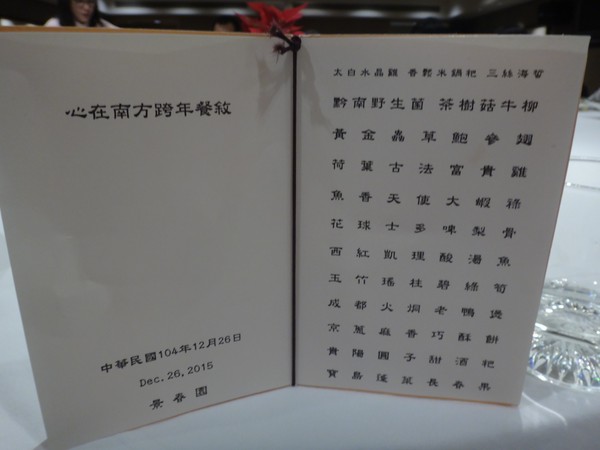 心在南方跨年餐敘
中華民國104年12月26日
Dec. 26, 2015
景春園
太白水晶雞 香鬆米鍋粑 三絲海蜇
黔南野生菌 茶樹菇牛柳
黃金蟲草鮑參翅
荷葉古法富貴雞
魚香天使大蝦祿
花球士多啤梨骨
西紅凱理酸湯魚
玉竹瑤柱碧綠筍
成都火焗老鴨煲
京蔥麻香巧酥餅
貴陽圓子甜酒粑
寶島蓬萊長春果